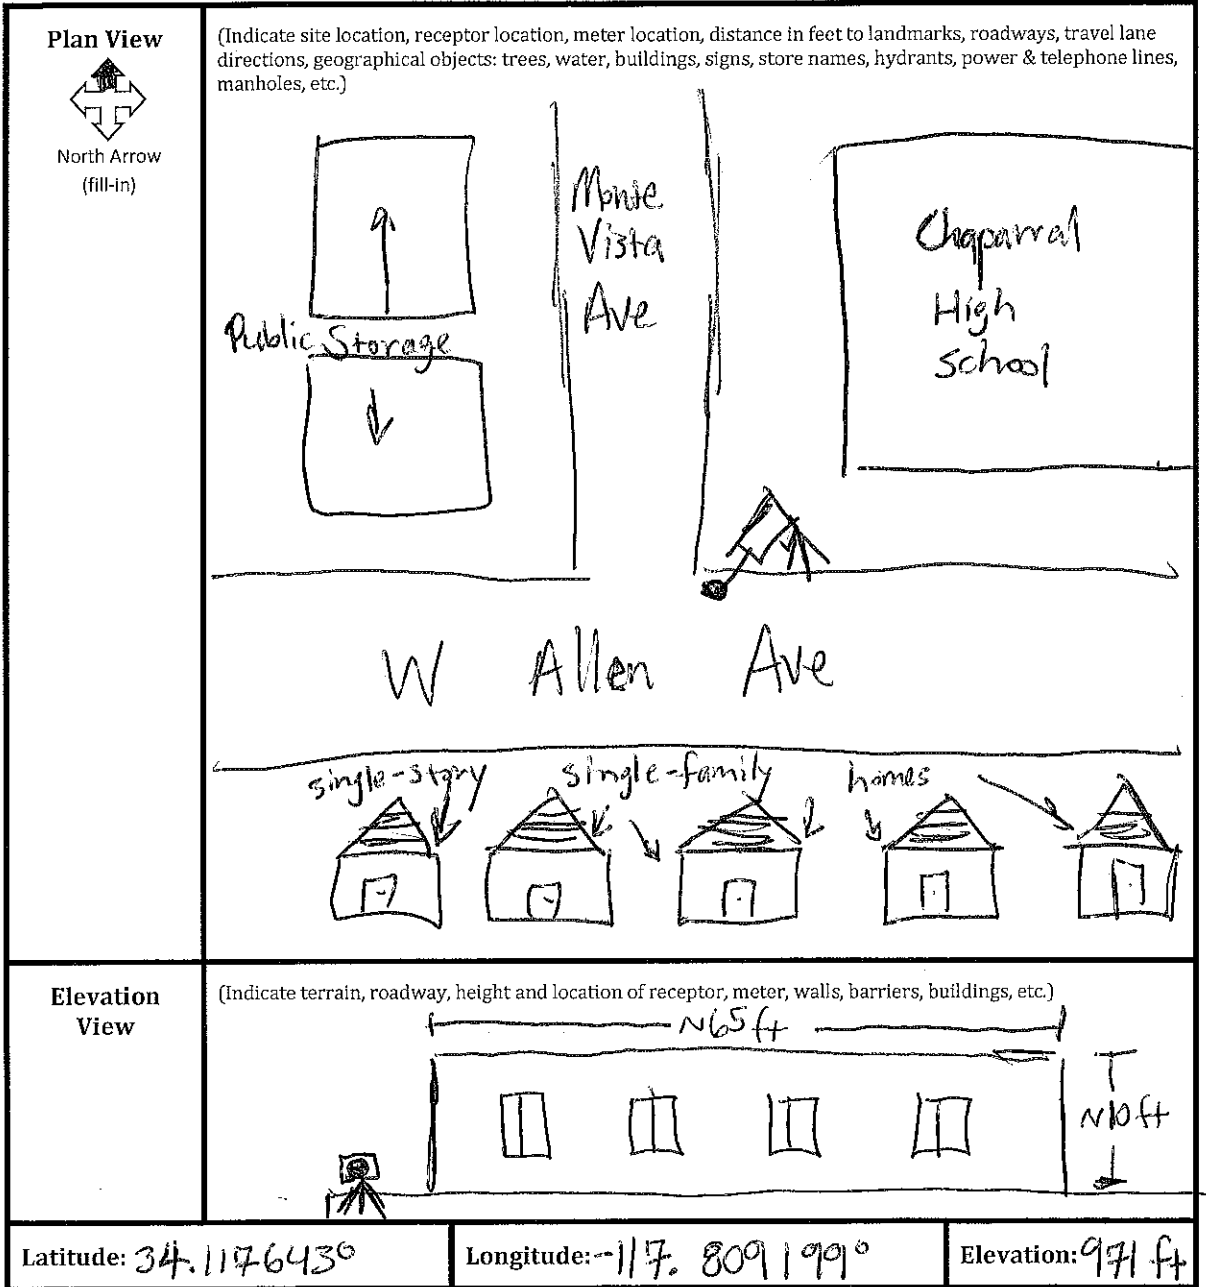 Plan View
North Arrow
(fill-in)
(Indicate site location, receptor location, meter location, distance in feet to landmarks, roadways, travel lane
directions, geographical objects: trees, water, buildings, signs, store names, hydrants, power & telephone lines,
manholes, etc.)
Monte
Vista
Ave
Chaparral
High
School
Public Storage
W Allen Ave
single-story single-family homes
Elevation
View
(Indicate terrain, roadway, height and location of receptor, meter, walls, barriers, buildings, etc.)
~65 ft
~10 ft
Latitude: 34.117643°
Longitude: -117.809199°
Elevation: 971 ft